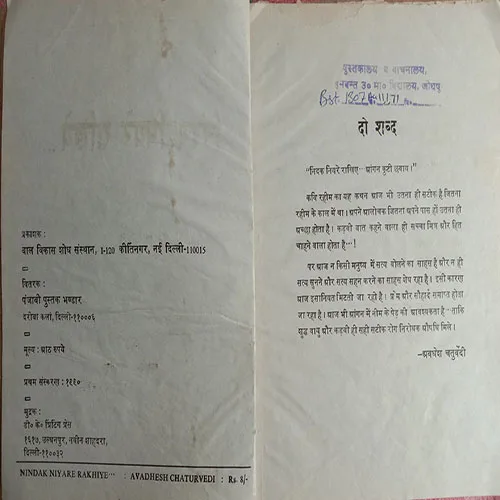 प्रकाशक :
बाल विकास शोध संस्थान, 1-120 कीर्तिनगर, नई दिल्ली-110015
वितरक :
पंजाबी पुस्तक भण्डार
दरीबा कलां, दिल्ली-११०००६
मूल्य : आठ रुपये
प्रथम संस्करण : १९९०
मुद्रक :
डी० के० प्रिंटिंग प्रेस
१६१७, उल्धनपुर, नवीन शाहदरा,
दिल्ली-११००३२
NINDAK NIYARE RAKHIYE··· : AVADHESH CHATURVEDI : Rs. 8/-
पुस्तकालय व वाचनालय,
उ० मा० विद्यालय,
दो शब्द
"निंदक नियरे राखिए···आंगन कुटी छवाय।"
कवि रहीम का यह कथन आज भी उतना ही सटीक है जितना
रहीम के काल में था। अपने आलोचक जितना अपने पास हों उतना ही
अच्छा होता है। कड़वी बात कहने वाला ही सच्चा मित्र और हित
चाहने वाला होता है···!
पर आज न किसी मनुष्य में सत्य बोलने का साहस है और न ही
सत्य सुनने और सत्य सहन करने का साहस शेष रहा है। इसी कारण
आज इंसानियत मिटती जा रही है। प्रेम और सौहार्द समाप्त होता
जा रहा है। आज भी आंगन में नीम के पेड़ की आवश्यकता है "ताकि
शुद्ध वायु और कड़वी ही सही सटीक रोग निरोधक औषधि मिले।
—अवधेश चतुर्वेदी